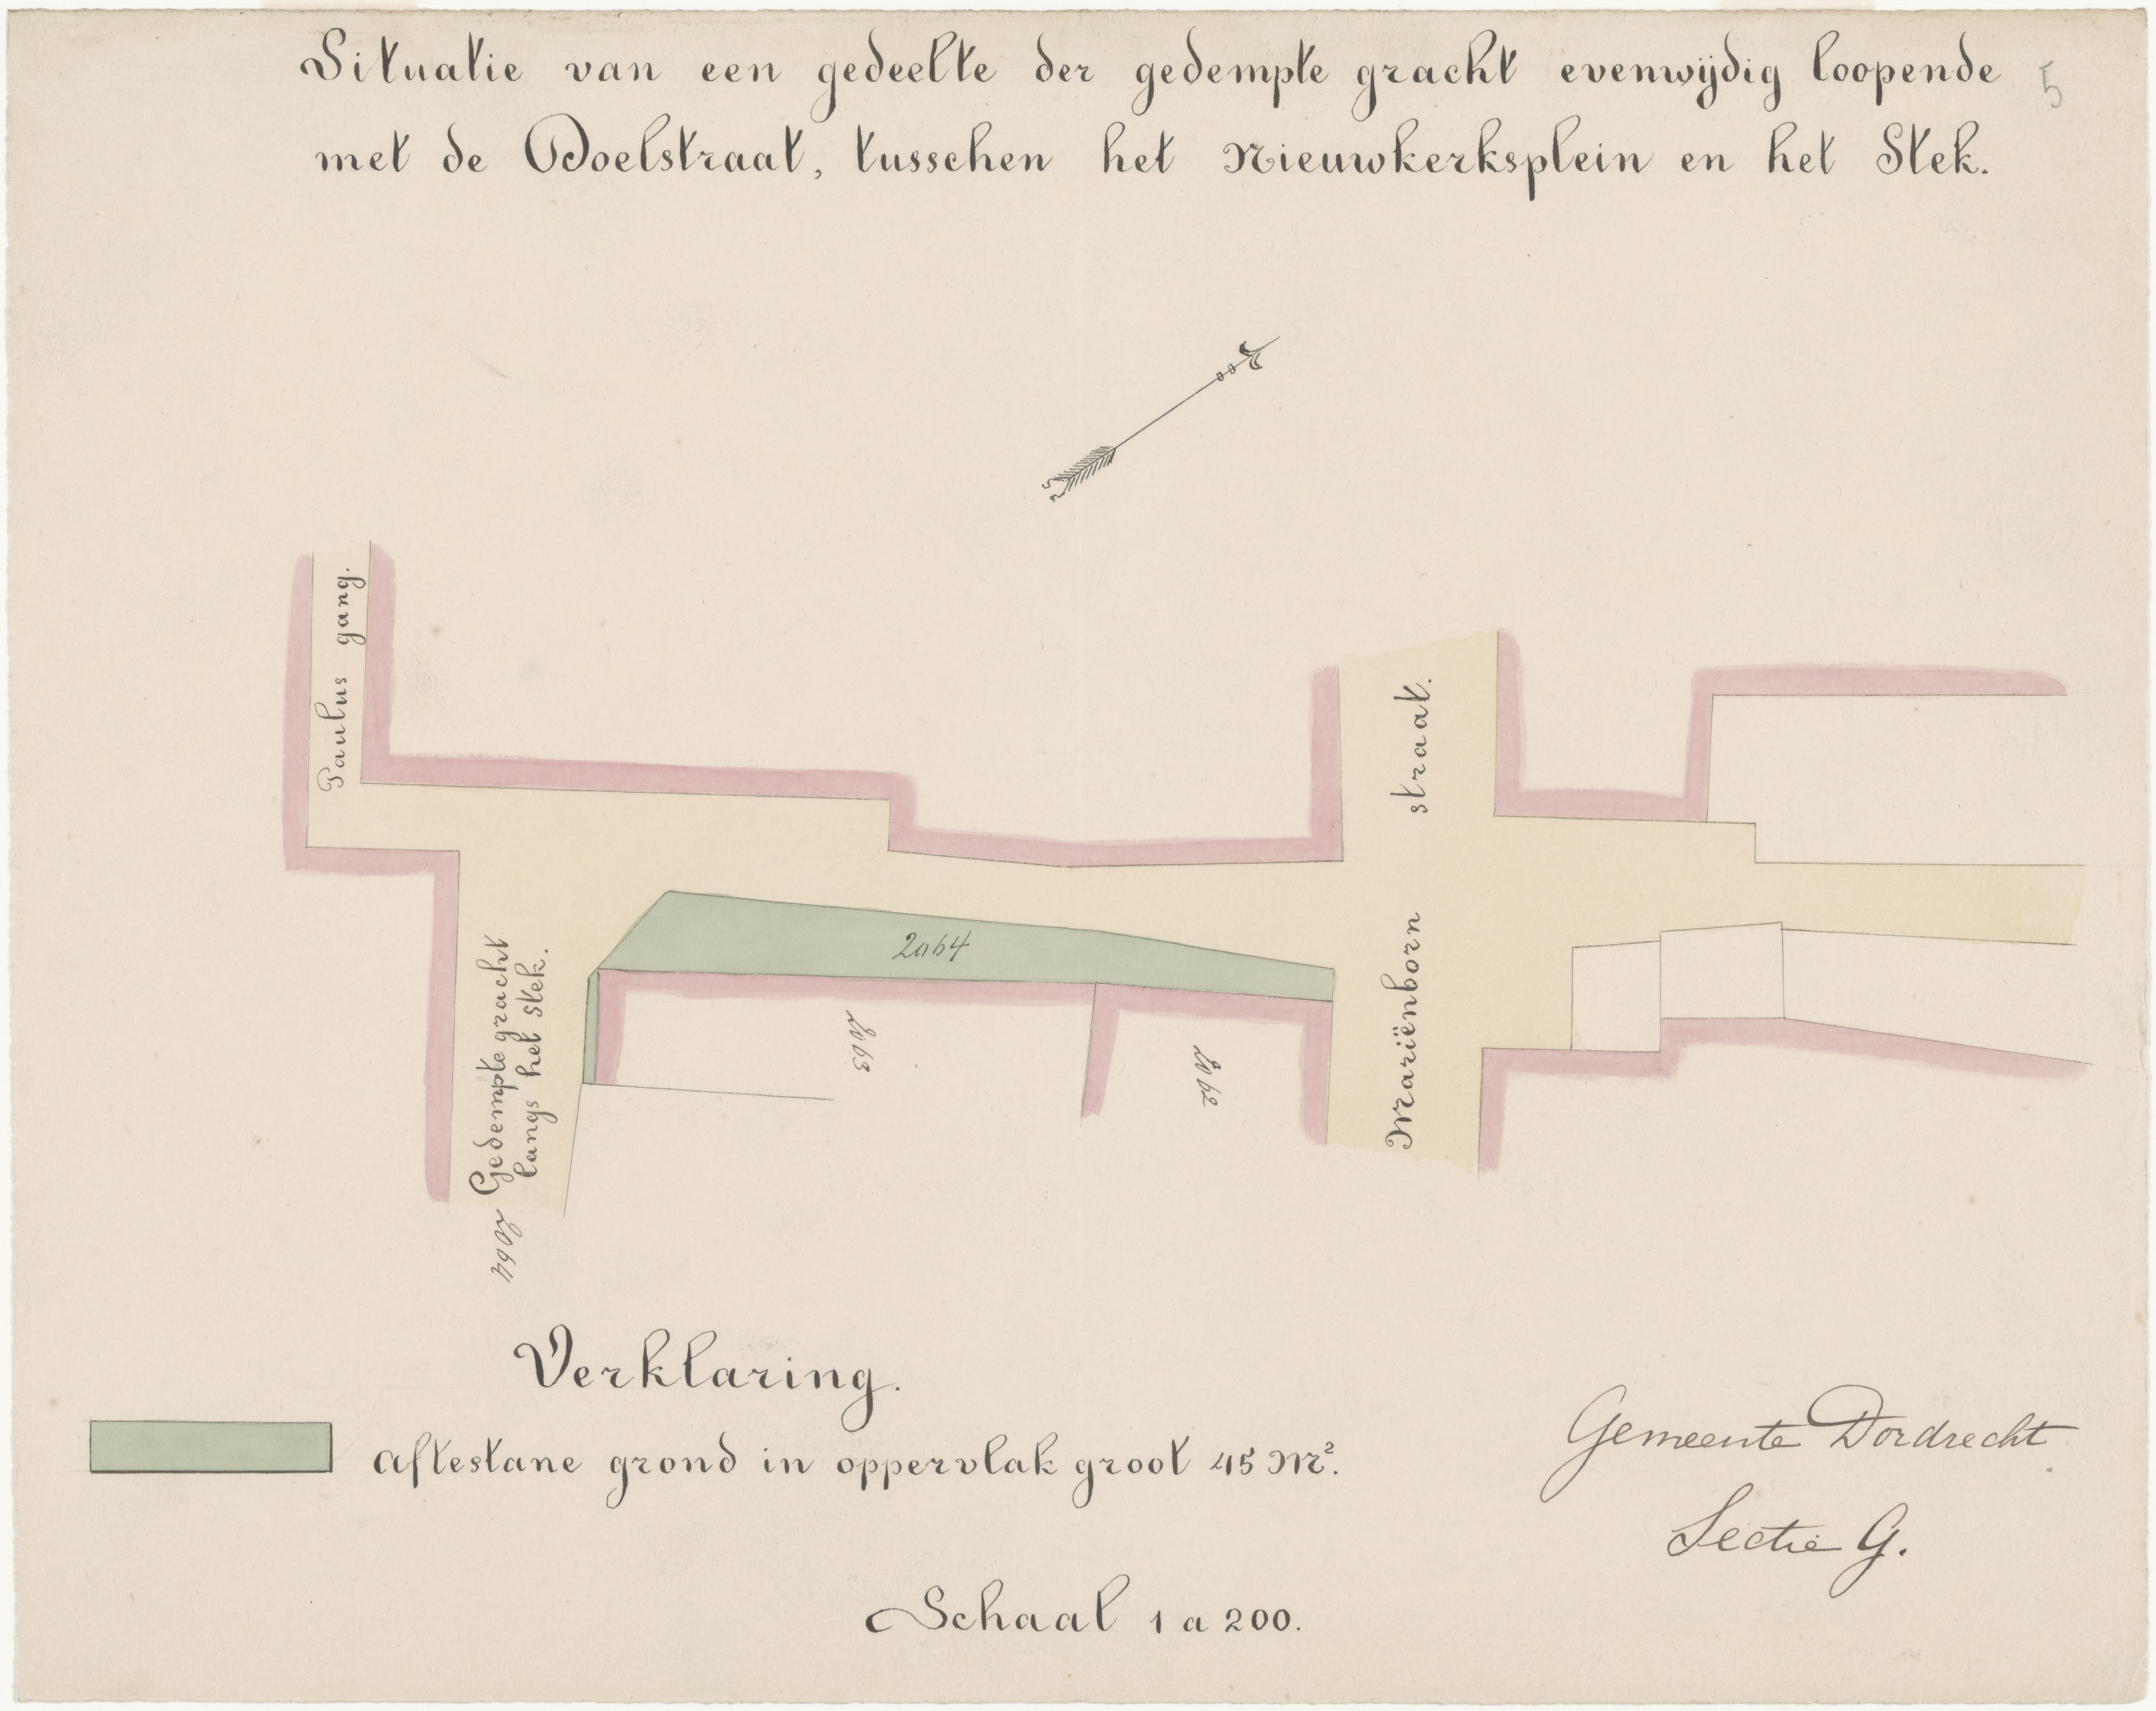 Situatie van een gedeelte der gedempte gracht evenwijdig loopende
5
met de Doelstraat, tusschen het Nieuwkerksplein en het Stek.
Paulus gang.
straat.
Mariënborn
2064
2063
2062
Gedempte gracht
langs het Stek.
2064
Verklaring.
Aftestane grond in oppervlak groot 45 M².
Gemeente Dordrecht
Sectie G.
Schaal 1 a 200.